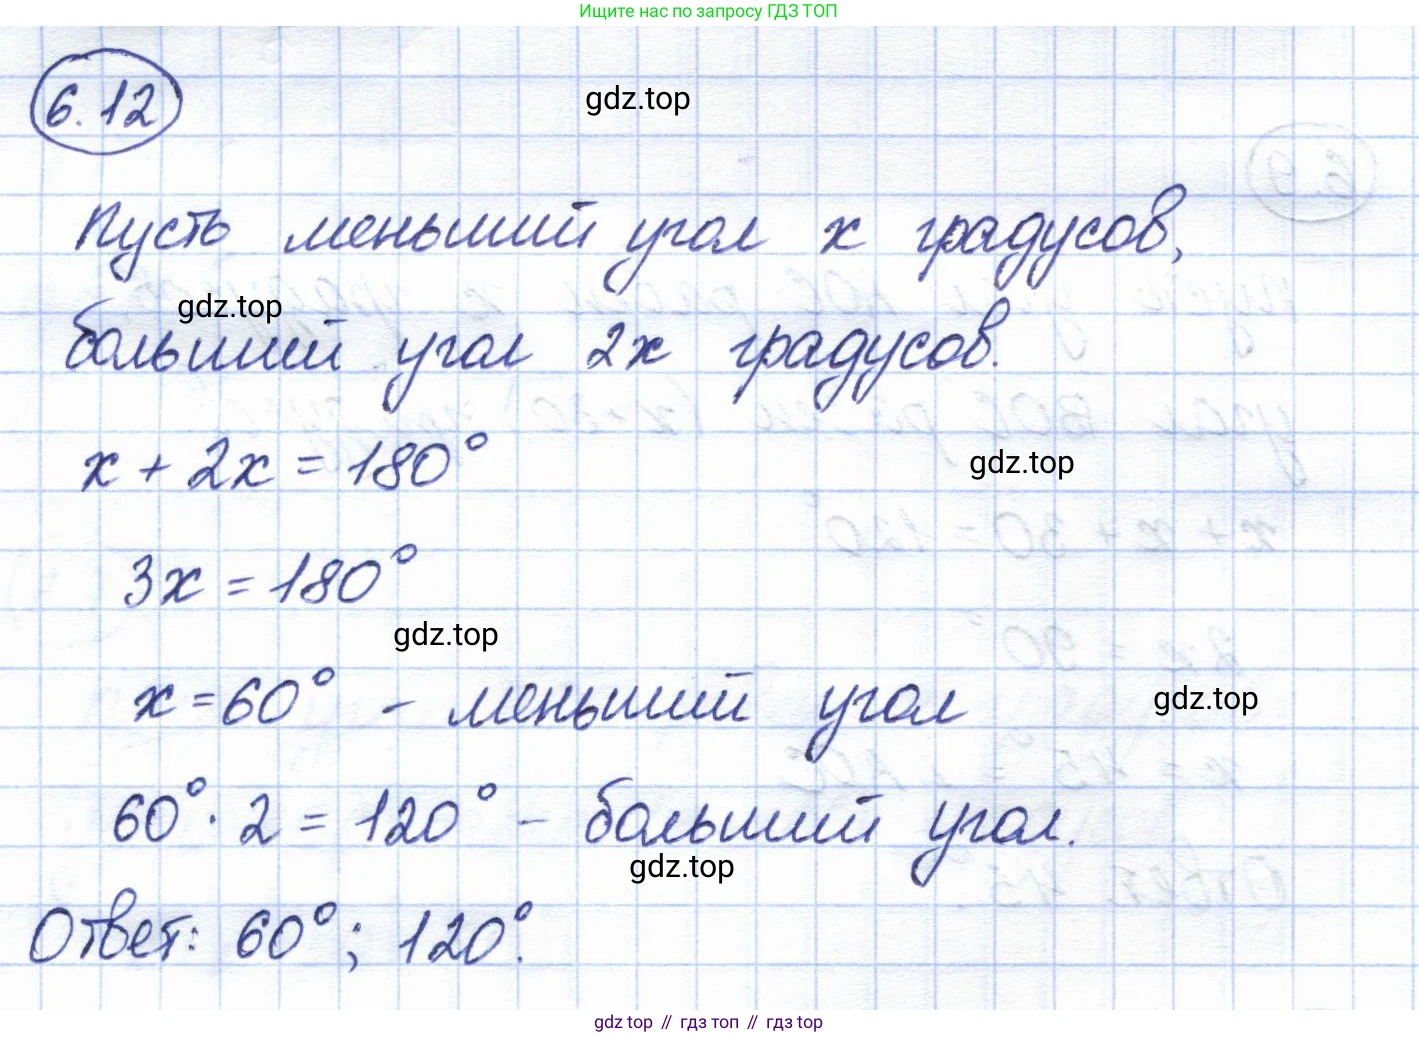 Ищите нас по запросу ГДЗ ТОП
6.12
gdz.top
Пусть меньший угол x градусов,
gdz.top
больший угол 2x градусов.
x + 2x = 180°
gdz.top
3x = 180°
gdz.top
x = 60° - меньший угол
gdz.top
60° · 2 = 120° - больший угол.
gdz.top
Ответ: 60°; 120°.
gdz top // гдз топ // gdz top